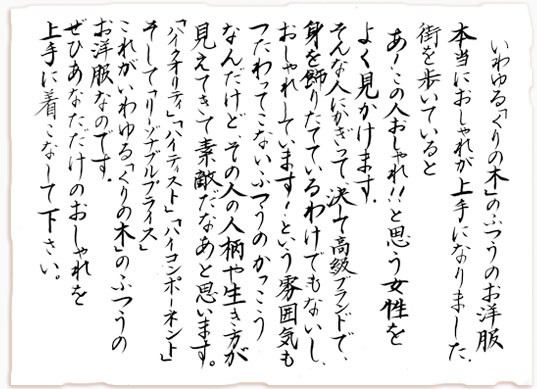 いわゆる「くりの木」のふつうのお洋服
本当におしゃれが上手になりました.
街を歩いていると
あ!この人おしゃれ!!と思う女性を
よく見かけます.
そんな人にかぎって決して高級ブランドで、
身を飾りたてているわけでもないし、
おしゃれしています!という雰囲気も
つたわってこないふつうのかっこう
なんだけど、その人の人柄や生き方が
見えてきて素敵だなあと思います。
「ハイクオリティ」「ハイテイスト」「ハイコンポーネント」
そして「リーゾナブルプライス」
これがいわゆる「くりの木」のふつうの
お洋服なのです.
ぜひあなただけのおしゃれを
上手に着こなして下さい。